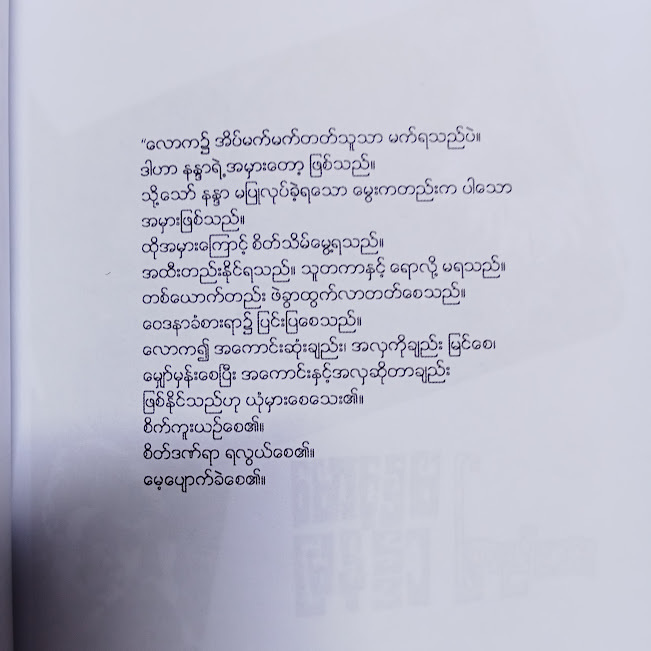 “လောက၌ အိပ်မက်မက်တတ်သူသာ မက်ရသည်ပဲ။
ဒါဟာ နန္ဒာရဲ့အမှားတော့ ဖြစ်သည်။
သို့သော် နန္ဒာ မပြုလုပ်ခဲ့ရသော မွေးကတည်းက ပါသော
အမှားဖြစ်သည်။
ထိုအမှားကြောင့် စိတ်သိမ်မွေ့ရသည်။
အထီးတည်းနိုင်ရသည်။ သူတကာနှင့် ရောလို့ မရသည်။
တစ်ယောက်တည်း ဖဲခွာထွက်လာတတ်စေသည်။
ဝေဒနာခံစားရာ၌ ပြင်းပြစေသည်။
လောက၍ အကောင်းဆုံးချည်း၊ အလှကိုချည်း မြင်စေ၊
မျှော်မှန်းစေပြီး အကောင်းနှင့်အလှဆိုတာချည်း
ဖြစ်နိုင်သည်ဟု ယုံမှားစေသေး၏။
စိက်ကူးယဉ်စေ၏။
စိတ်ဒဏ်ရာ ရလွယ်စေ၏။
မေ့ပျောက်ခဲစေ၏။